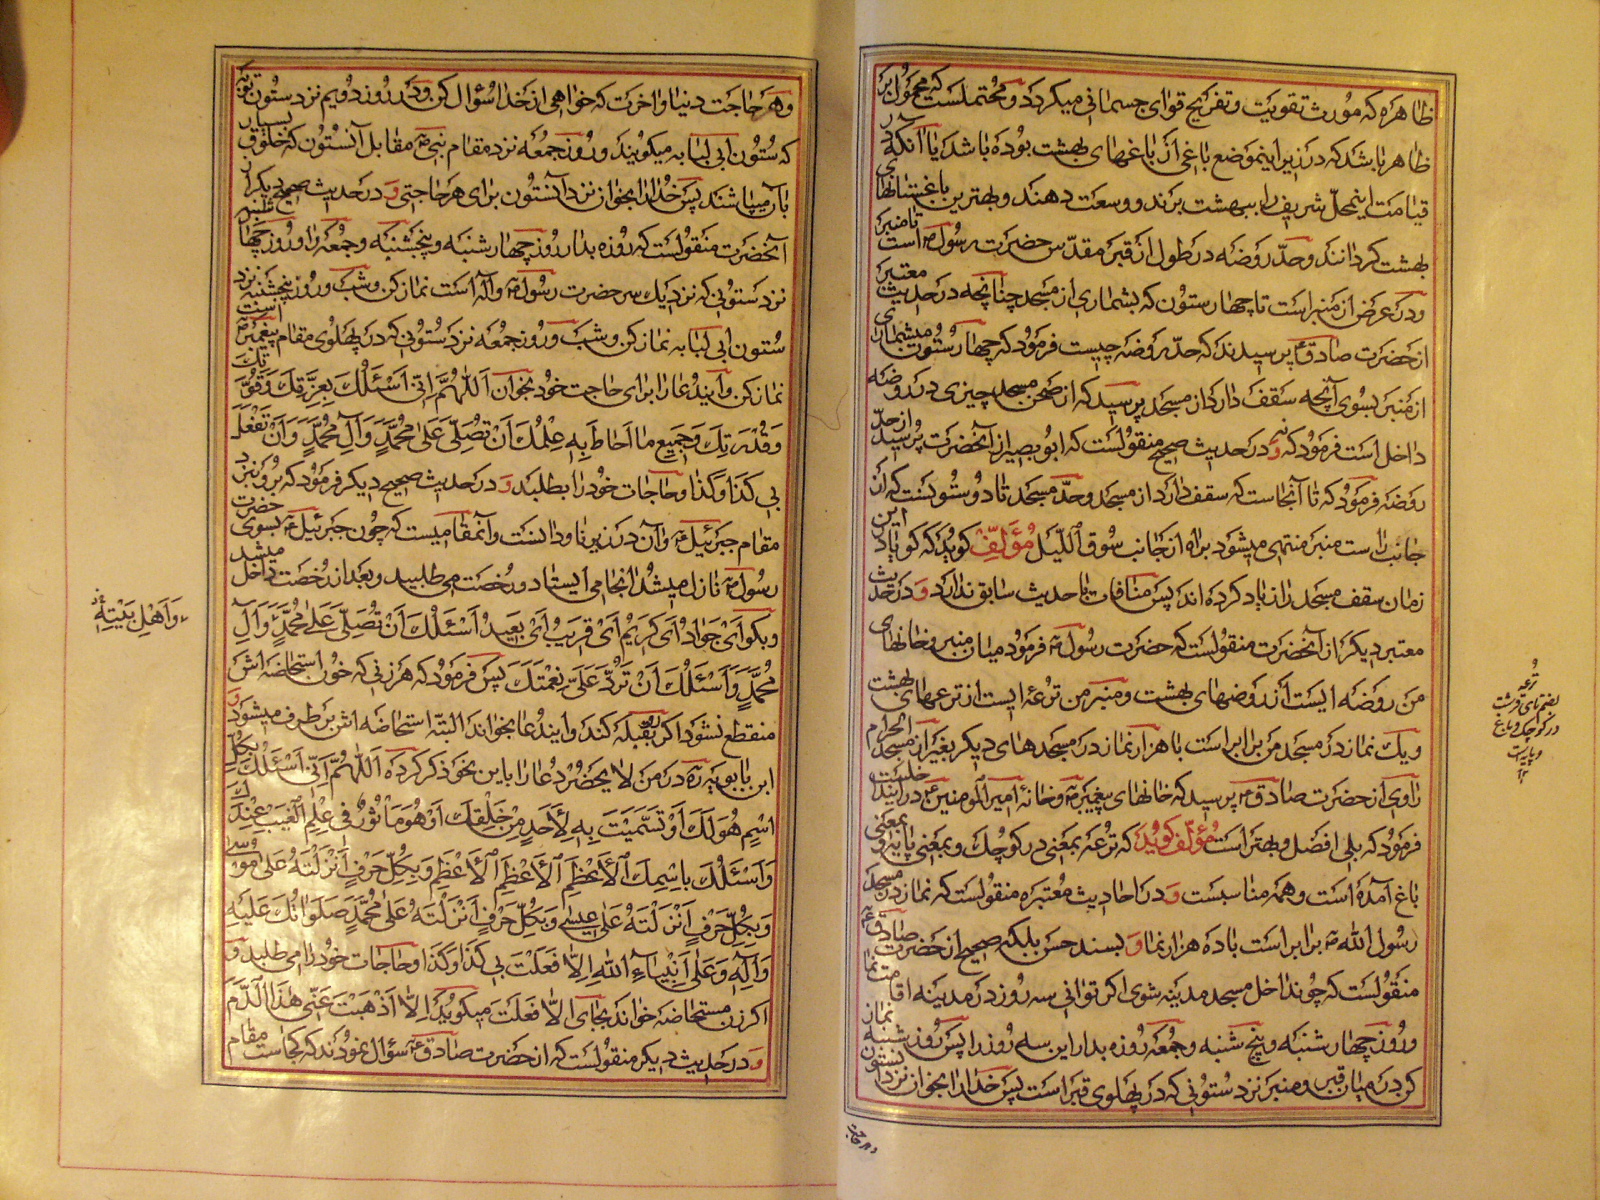 ظاهره که مورث تقویت و تفریح قوای جسمانی میکردد و محتملست که محمول بر
ظاهر باشد که در زیر اینموضع باغی از باغهای بهشت بوده باشد یا آنکه در
قیامت اینمحل شریف را ببهشت برند و وسعت دهند و بهترین باغستانهای
بهشت کردانند و حدّ روضه در طول از قبر مقدّس حضرت رسول ص است تا منبر
و در عرض از منبر است تا چهار ستون که بشماری از مسجد چنانچه در حدیث معتبر
از حضرت صادق ع پرسیدند که حدّ روضه چیست فرمود که چهار ستون میشماری
از منبر بسوی آنچه سقف دارد از مسجد پرسید که از صحن مسجد چیزی در روضه
داخل است فرمود که نه و در حدیث صحیح منقولست که ابو بصیر از آنحضرت پرسید از حدّ
روضه فرمود که تا آنجاست که سقف دارد از مسجد و حدّ مسجد تا دو ستونست که از
جانب راست منبر منتهی میشود براه از جانب سوق اللّیل مؤلّف کوید که کویا در این
زمان سقف مسجد را زیاد کرده اند پس منافات با حدیث سابق ندارد و در حدیث
معتبر دیکر از آنحضرت منقولست که حضرت رسول ص فرمود میان منبر و خانهای
من روضه ایست از روضهای بهشت و منبر من ترعه ایست از ترعهای بهشت
و یک نماز در مسجد من برابر است با هزار نماز در مسجدهای دیکر بغیر از مسجد الحرام
راوی از حضرت صادق ع پرسید که خانهای پیغمبر ص و خانهٔ امیر المومنین ع در اینها داخلست
فرمود که بلی افضل و بهتر است مؤلّف کوید که ترعه بمعنی در کوچک و بمعنی پایه و بمعنی
باغ آمده است و همه مناسبست و در احادیث معتبره منقولست که نماز در مسجد
رسول الله ص برابر است با ده هزار نماز و بسند حسن بلکه صحیح از حضرت صادق ع
منقولست که چون داخل مسجد مدینه شوی اکر توانی سه روز در مدینه اقامت نما
و روز چهار شنبه و پنج شنبه و جمعه روزه بدار این سه روز را پس روز شنبه نماز
کن در میان قبر و منبر نزد ستونی که در پهلوی قبر است پس خدا را بخوان نزد انستون
و هر حاجت
ترعه
بضم تای قرشت
در کوچک و باغ
و پایه است
۱۲
و هر حاجت دنیا و اخرت که خواهی از خدا سؤال کن و در روز دویم نزد ستون توبه
که ستون ابی لبابه میکویند و روز جمعه نزد مقام نبی ص مقابل آنستون که خلوق بسیار
بآن میپاشند پس خدا را بخوان نزد آنستون برای هر حاجتی و در حدیث صحیح دیکر از
آنحضرت منقولست که روزه بدار روز چهار شنبه و پنجشنبه و جمعه را و روز چهار شنبه
نزد ستونی که نزدیک سر حضرت رسول ص و آله است نماز کن و شب و روز پنجشنبه نزد
ستون ابی لبابه نماز کن و شب و روز جمعه نزد ستونی که در پهلوی مقام پیغمبر ص است
نماز کن و ایندعا را برای حاجت خود بخوان اَللّهُمَّ اِنّی اَسْئَلُكَ بِعِزَّتِكَ وَ قُوَّتِكَ
وَ قُدْرَتِكَ وَ جَمیعِ ما اَحاطَ بِهِ عِلْمُكَ اَنْ تُصَلِّیَ عَلی مُحَمَّدٍ وَ آلِ مُحَمَّدٍ وَ اَنْ تَفْعَلَ
بی كَذا وَ كَذا و حاجات خود را بطلبد و در حدیث صحیح دیکر فرمود که برو بنزد
مقام جبرئیل ع و آن در زیر ناودانست و آنمقامیست که چون جبرئیل ع بسوی حضرت
رسول ص نازل میشد انجا می ایستاد و رخصت می طلبید و بعد از رخصت داخل میشد
و بکو اَیْ جَوادُ اَیْ كَریمُ اَیْ قَریبُ اَیْ بَعیدُ اَسْئَلُكَ اَنْ تُصَلِّیَ عَلی مُحَمَّدٍ وَ آلِ
مُحَمَّدٍ وَ اَسْئَلُكَ اَنْ تَرُدَّ عَلَیَّ نِعْمَتَكَ پس فرمود که هر زنی که خون استحاضه اش
منقطع نشود اکر رو بقبله کند و ایندعا بخواند البتّه استحاضه اش بر طرف میشود و
ابن بابویه ره در من لا یحضر دعا را باین نحو ذکر کرده اَللّهُمَّ اِنّی اَسْئَلُكَ بِكُلِّ
اسْمٍ هُوَ لَكَ اَوْ تَسَمَّیْتَ بِهِ لِاَحَدٍ مِنْ خَلْقِكَ اَوْ هُوَ مَأْثُورٌ فی عِلْمِ الْغَیْبِ عِنْدَكَ
وَ اَسْئَلُكَ بِاسْمِكَ الْاَعْظَمِ الْاَعْظَمِ الْاَعْظَمِ وَ بِكُلِّ حَرْفٍ اَنْزَلْتَهُ عَلی مُوسی
وَ بِكُلِّ حَرْفٍ اَنْزَلْتَهُ عَلی عیسی وَ بِكُلِّ حَرْفٍ اَنْزَلْتَهُ عَلی مُحَمَّدٍ صَلَواتُكَ عَلَیْهِ
وَ آلِهِ وَ عَلی اَنْبِیاءِ اللهِ اِلاّ فَعَلْتَ بی كَذا وَ كَذا و حاجات خود را می طلبد و
اکر زن مستحاضه خواند بجای اِلاّ فَعَلْتَ میکوید اِلاّ اَذْهَبْتَ عَنّی هٰذَا الدَّمَ
و در حدیث دیکر منقولست که از حضرت صادق ع سؤال نمودند که کجاست مقام
وَ اَهْلِ بَیْتِهِ